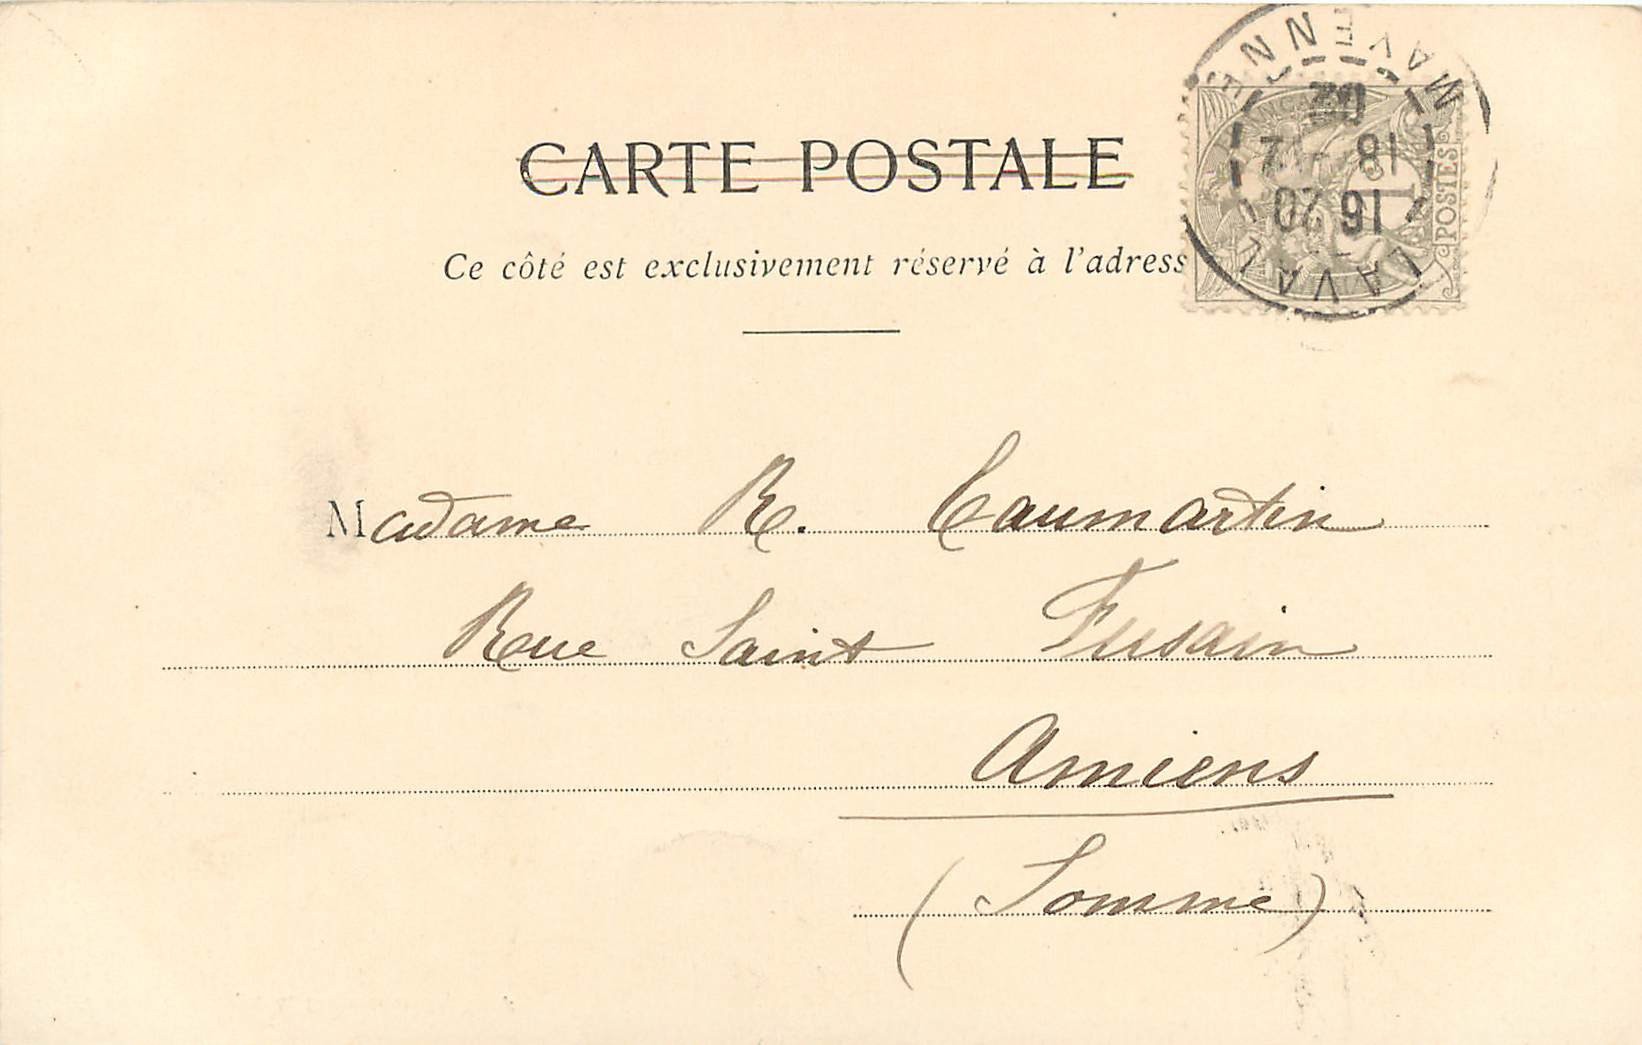 CARTE POSTALE
Ce côté est exclusivement réservé à l'adress
POSTES
LAVAL
16 20
18
02
MAYENNE
Madame R. Caumartin
Rue Saint Fusain
Amiens
(Somme)